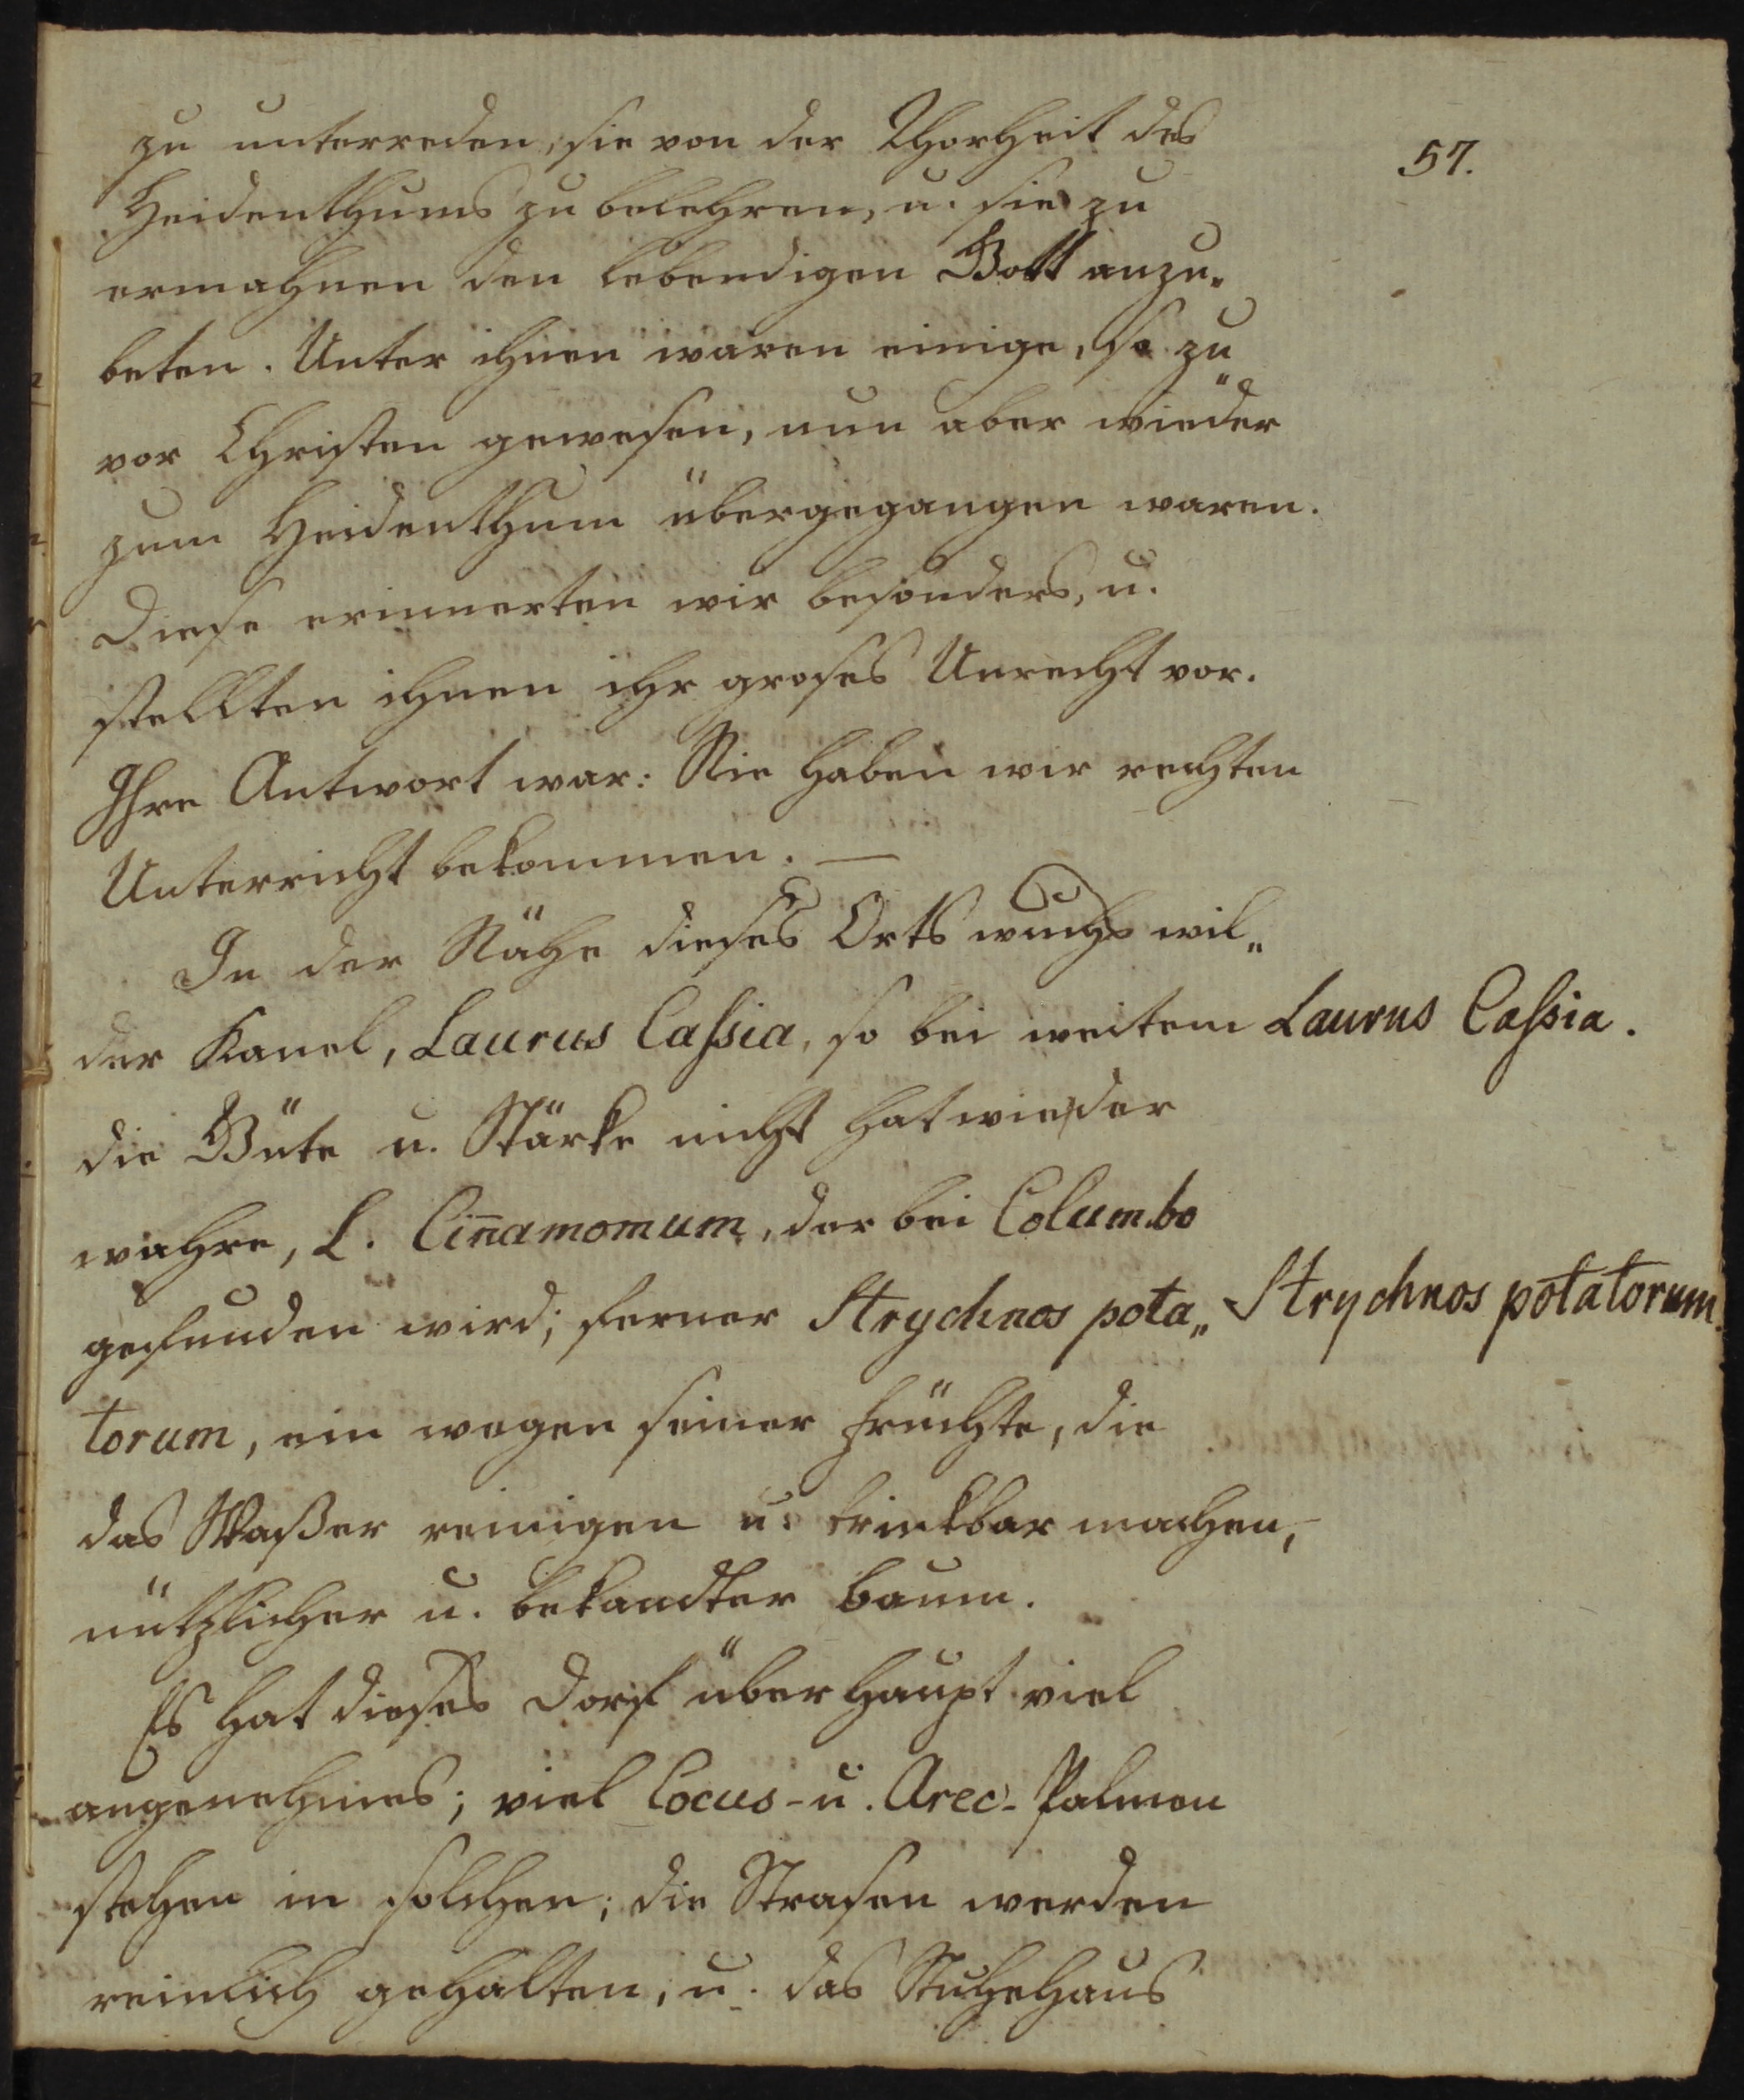 57.
zu unterreden, sie von der Thorheit des
Heidenthums zu belehren, u. sie zu
ermahnen den lebendigen Gott anzu„
beten. Unter ihnen waren einige, so zu„
vor Christen gewesen, nun aber wieder
zum Heidenthum übergegangen waren.
Diese erinnerten wir besonders, u.
stellten ihnen ihr groses Unrecht vor.
Ihre Antwort war: Nie haben wir rechten
Unterricht bekommen. —
In der Nähe dieses Orts wuchs wil„
der Kanel, Laurus Caſsia, so bei weitem
Laurus Caſsia.
die Güte u. Stärke nicht hat wie der
wahre, L. Cin̅amomum, der bei Columbo
gefunden wird; ferner Strychnos pota„
Strychnos potatorum.
torum, ein wegen seiner Früchte, die
das Waßer reinigen u. trinkbar machen,
nützlicher u. bekandter Baum.
Es hat dieses Dorf überhaupt viel
angenehmes; viel Cocus- u. Arec-Palmen
stehen in solchen; die Strasen werden
reinlich gehalten, u. das Ruhehaus